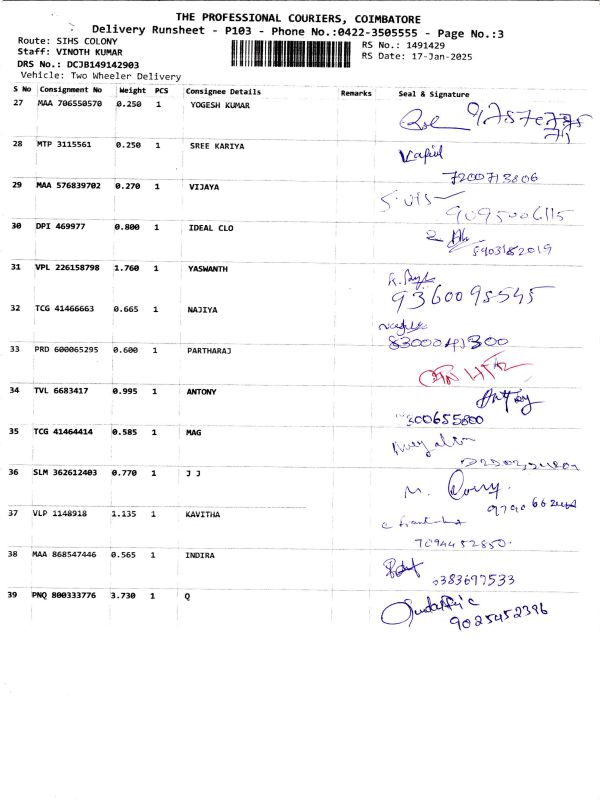 THE PROFESSIONAL COURIERS, COIMBATORE
Delivery Runsheet - P103 - Phone No.:0422-3505555 - Page No.:3
Route: SIHS COLONY
RS No.: 1491429
Staff: VINOTH KUMAR
RS Date: 17-Jan-2025
DRS No.: DCJB149142903
Vehicle: Two Wheeler Delivery
S No Consignment No Weight PCS Consignee Details Remarks Seal & Signature
27 MAA 706550570 0.250 1 YOGESH KUMAR
28 MTP 3115561 0.250 1 SREE KARIYA
7200713806
29 MAA 576839702 0.270 1 VIJAYA
9095006115
30 DPI 469977 0.800 1 IDEAL CLO
8903182019
31 VPL 226158798 1.760 1 YASWANTH
9360098545
32 TCG 41466663 0.665 1 NAJIYA
8300041300
33 PRD 600065295 0.600 1 PARTHARAJ
34 TVL 6683417 0.995 1 ANTONY
Antony
300655800
35 TCG 41464414 0.585 1 MAG
36 SLM 362612403 0.770 1 J J
37 VLP 1148918 1.135 1 KAVITHA
7094452850.
38 MAA 868547446 0.565 1 INDIRA
6383697533
39 PNQ 800333776 3.730 1 Q
9025452396